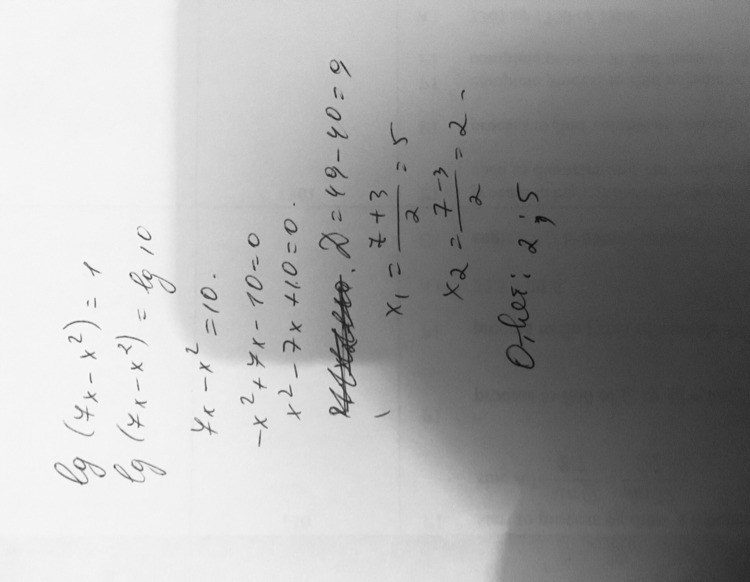 lg (7x - x²) = 1
lg (7x - x²) = lg 10
7x - x² = 10.
-x² + 7x - 10 = 0
x² - 7x + 10 = 0.
D = 49 - 40 = 9
x₁ = (7 + 3)/2 = 5
x₂ = (7 - 3)/2 = 2
2; 5